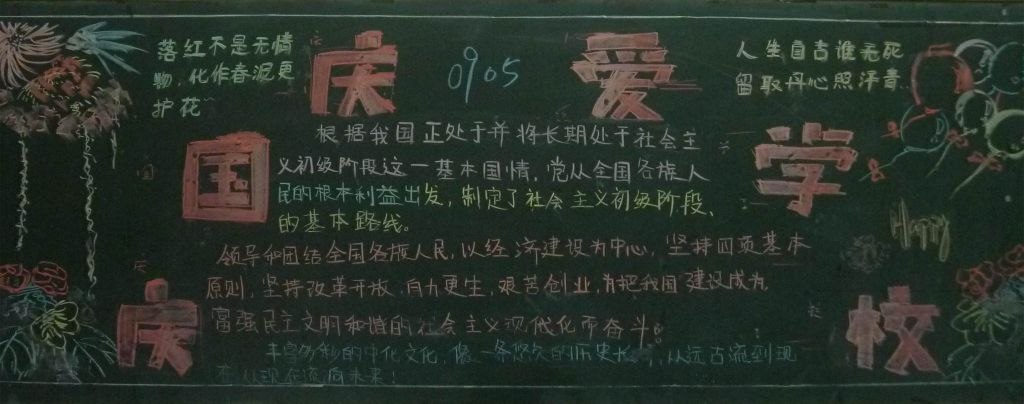 落红不是无情
物，化作春泥更
护花
庆
0905
爱
人生自古谁无死
留取丹心照汗青
国
学
根据我国正处于并将长期处于社会主
义初级阶段这一基本国情，党从全国各族人
民的根本利益出发，制定了社会主义初级阶段、
的基本路线。
Happy
领导和团结全国各族人民，以经济建设为中心，坚持四项基本
原则，坚持改革开放，自力更生，艰苦创业，为把我国建设成为
富强民主文明和谐的社会主义现代化而奋斗。
庆
校
丰富多彩的中化文化，像一条悠久的历史长，从远古流到现
在从现在流向未来！